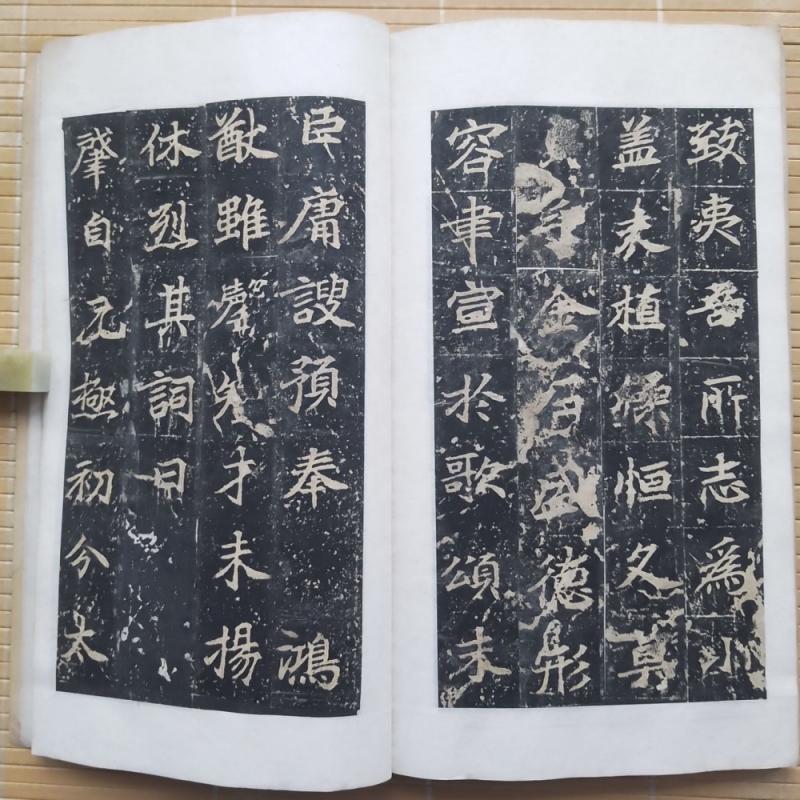 致夷吾所志為小
盖夫植標恒久莫
金石盛德形
容聿宣於歌頌未
臣庸謏預奉 鴻
猷雖罄才未揚
休烈其詞曰
肇自元極初分太